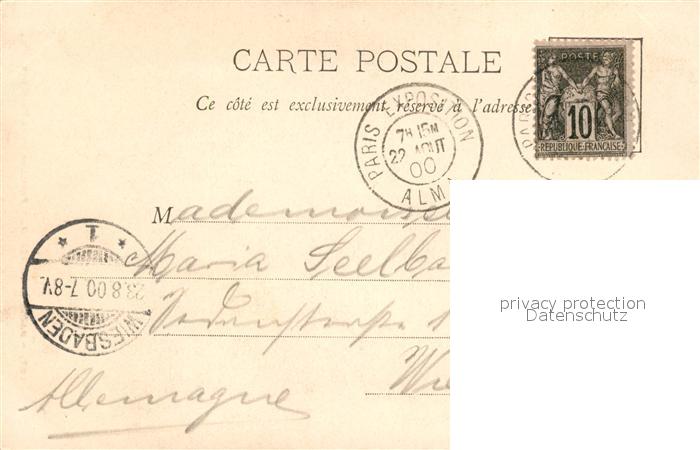 CARTE POSTALE
Ce côté est exclusivement réservé à l'adresse
POSTE
10
REPUBLIQUE FRANÇAISE
PARIS EXPOSITION
7H 15M
22 AOUT
00
ALM
PARIS
Mademoise
Maria Seelba
1
23.8.00.7-8V.
WIESBADEN
Wie
Allemagne
privacy protection
Datenschutz